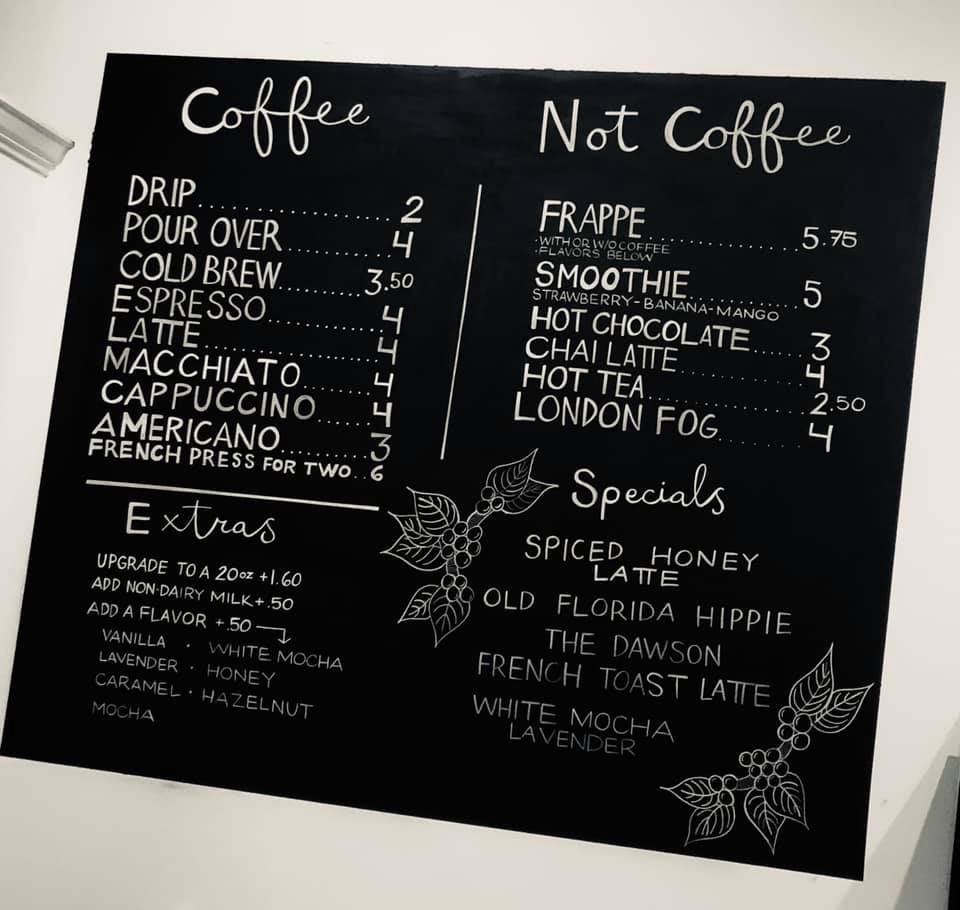 Coffee
DRIP.................... 2
POUR OVER............ 4
COLD BREW.........3.50
ESPRESSO............... 4
LATTE..................... 4
MACCHIATO......... 4
CAPPUCCINO....... 4
AMERICANO......... 3
FRENCH PRESS FOR TWO..6
Extras
UPGRADE TO A 20oz +1.60
ADD NON-DAIRY MILK+.50
ADD A FLAVOR +.50
VANILLA · WHITE MOCHA
LAVENDER · HONEY
CARAMEL · HAZELNUT
MOCHA
Not Coffee
FRAPPE................5.75
·WITH OR W/O COFFEE
·FLAVORS BELOW
SMOOTHIE............ 5
STRAWBERRY-BANANA-MANGO
HOT CHOCOLATE...... 3
CHAI LATTE............ 4
HOT TEA...............2.50
LONDON FOG......... 4
Specials
SPICED HONEY
LATTE
OLD FLORIDA HIPPIE
THE DAWSON
FRENCH TOAST LATTE
WHITE MOCHA
LAVENDER